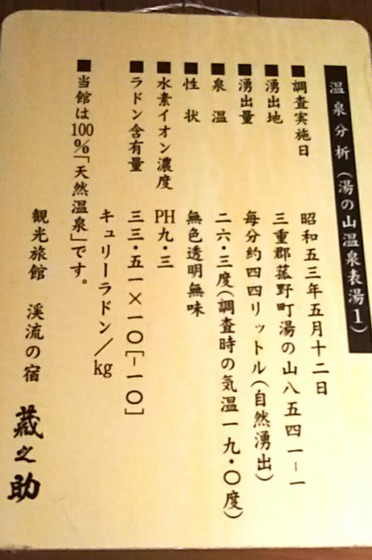 温泉分析(湯の山温泉表湯1)
■調査実施日 昭和五三年五月十二日
■湧出地 三重郡菰野町湯の山八五四一ー一
■湧出量 毎分約四四リットル(自然湧出)
■泉温 二六・三度(調査時の気温一九・〇度)
■性状 無色透明無味
■水素イオン濃度 PH九・三
■ラドン含有量 三三・五一×一〇[ー一〇]
キュリーラドン/kg
■当館は100%「天然温泉」です。
観光旅館 渓流の宿 蔵之助